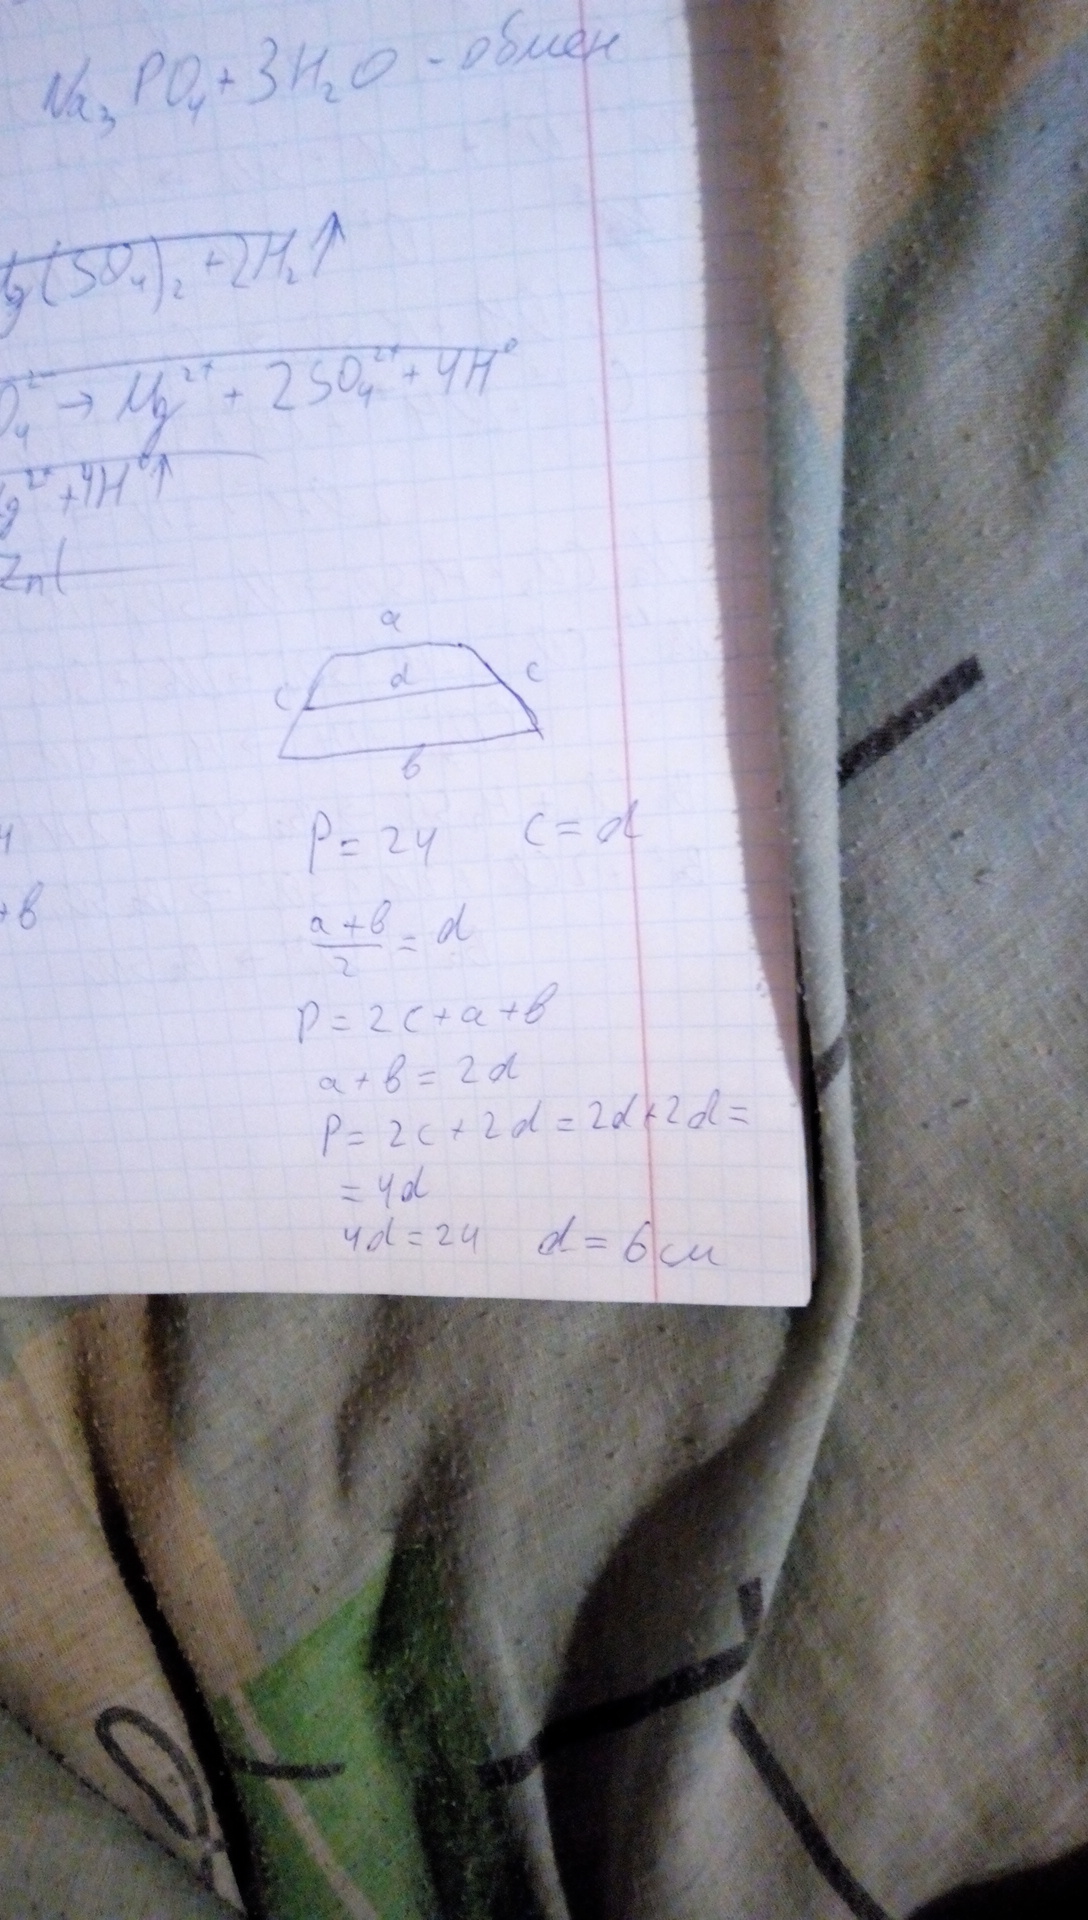 Na₃PO₄ + 3H₂O - обмен
Mg(SO₄)₂ + 2H₂↑
O₄²⁻ → Mg²⁺ + 2SO₄²⁺ + 4H⁰
g²⁺ + 4H⁰↑
Zn(
a
c d c
b
4
+ b
P = 24 c = d
(a + b)/2 = d
P = 2c + a + b
a + b = 2d
P = 2c + 2d = 2d + 2d =
= 4d
4d = 24 d = 6 см